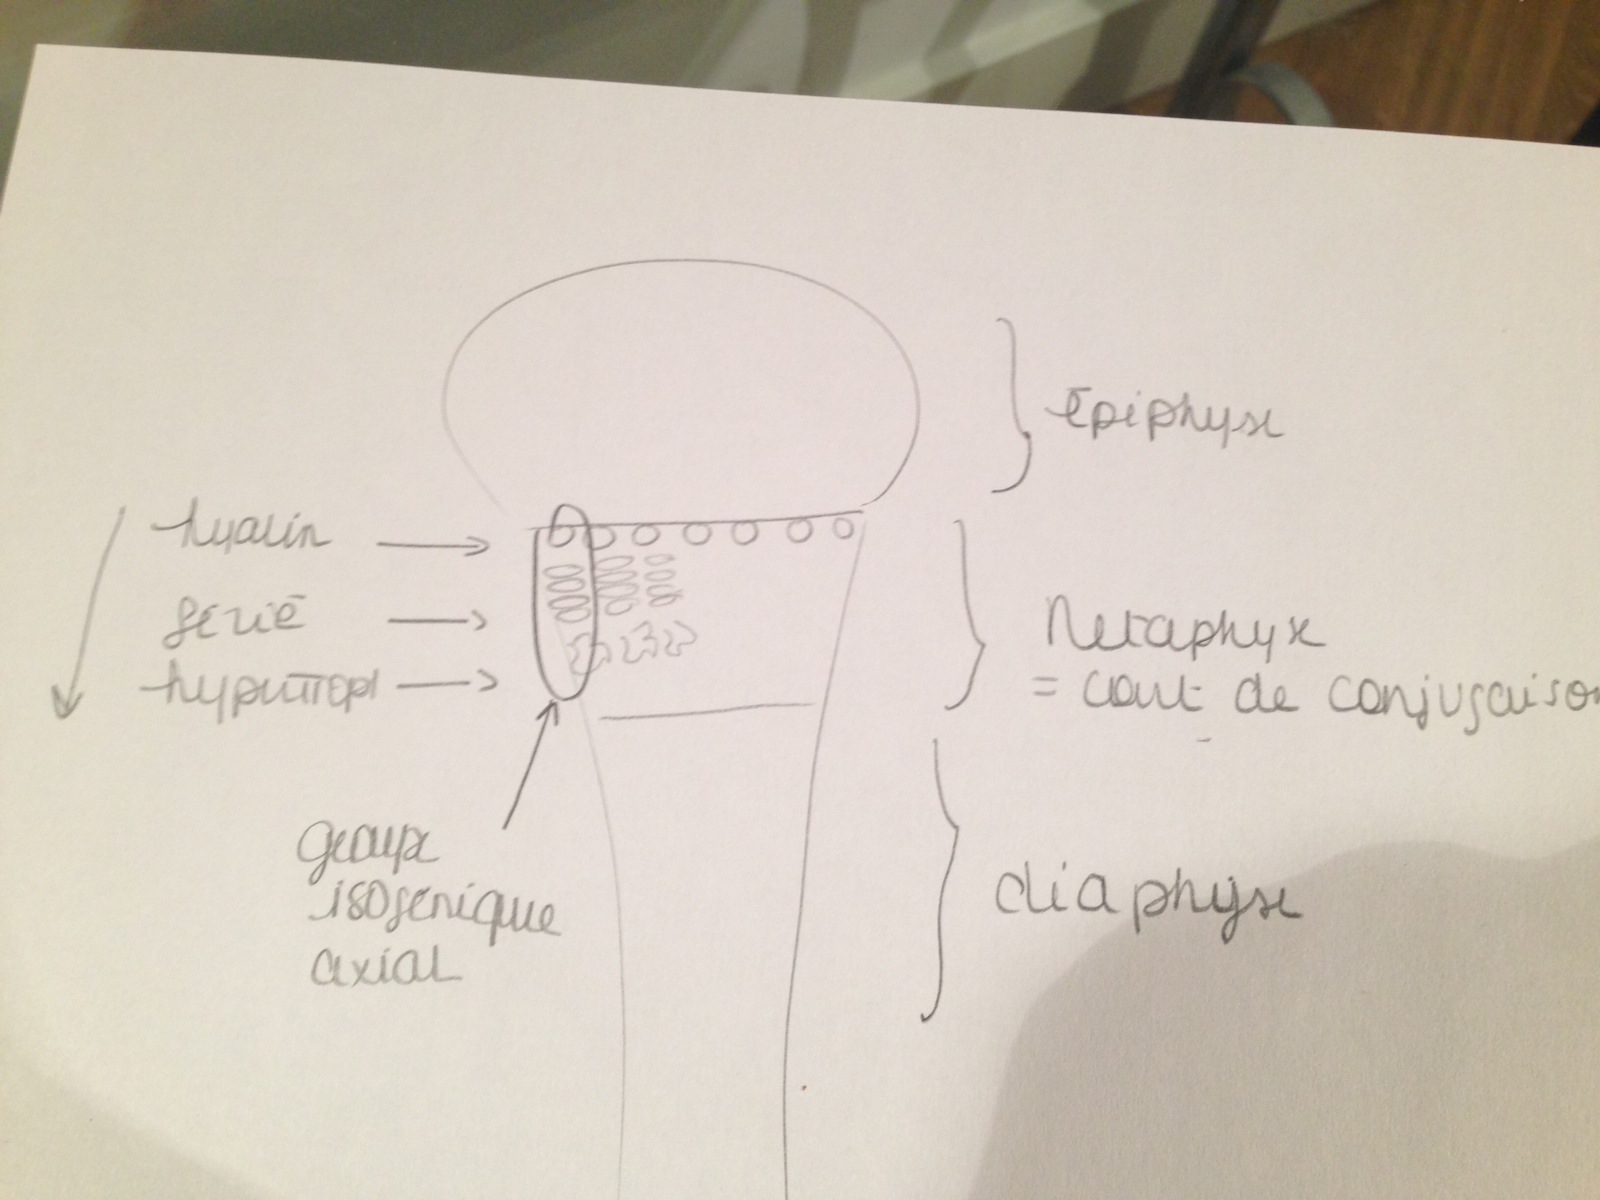 épiphyse
hyalin
sérié
hypertroph
Métaphyse
= cart de conjugaison
groupe
isogénique
axial
diaphyse